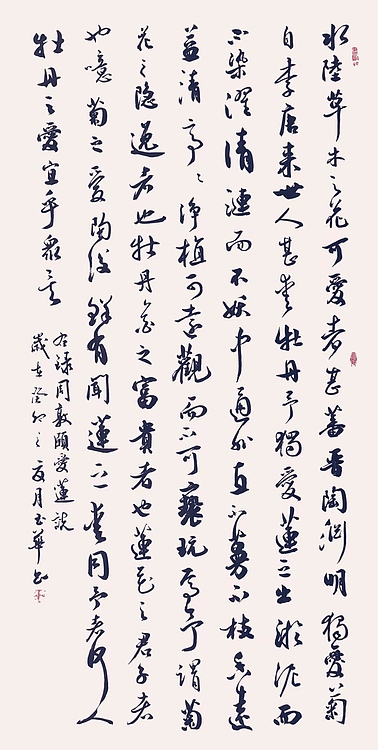 水陸草木之花可愛者甚蕃晋陶淵明獨愛菊
自李唐来世人甚愛牡丹予獨愛蓮之出淤泥而
不染濯清漣而不妖中通外直不蔓不枝香遠
益清亭々浄植可遠觀而不可褻玩焉予謂菊
花之隐逸者也牡丹花之富貴者也蓮花之君子者
也噫菊之愛陶後鮮有聞蓮之愛同予者何人
牡丹之愛宜乎衆矣
右録周敦頤愛蓮説
歲在癸卯之夏月玉華書